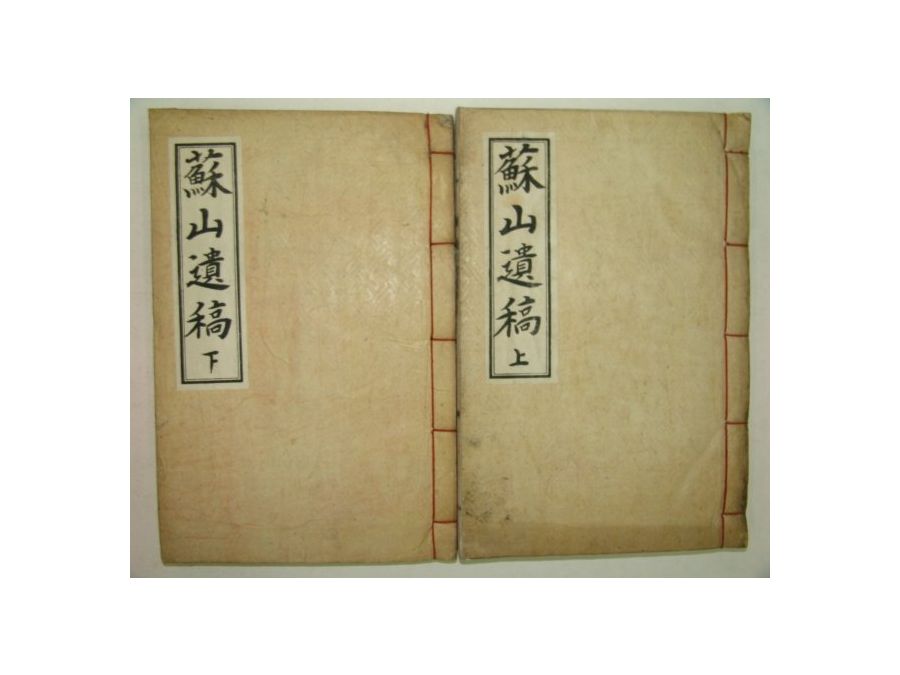 蘇山遺稿 上
蘇山遺稿 下